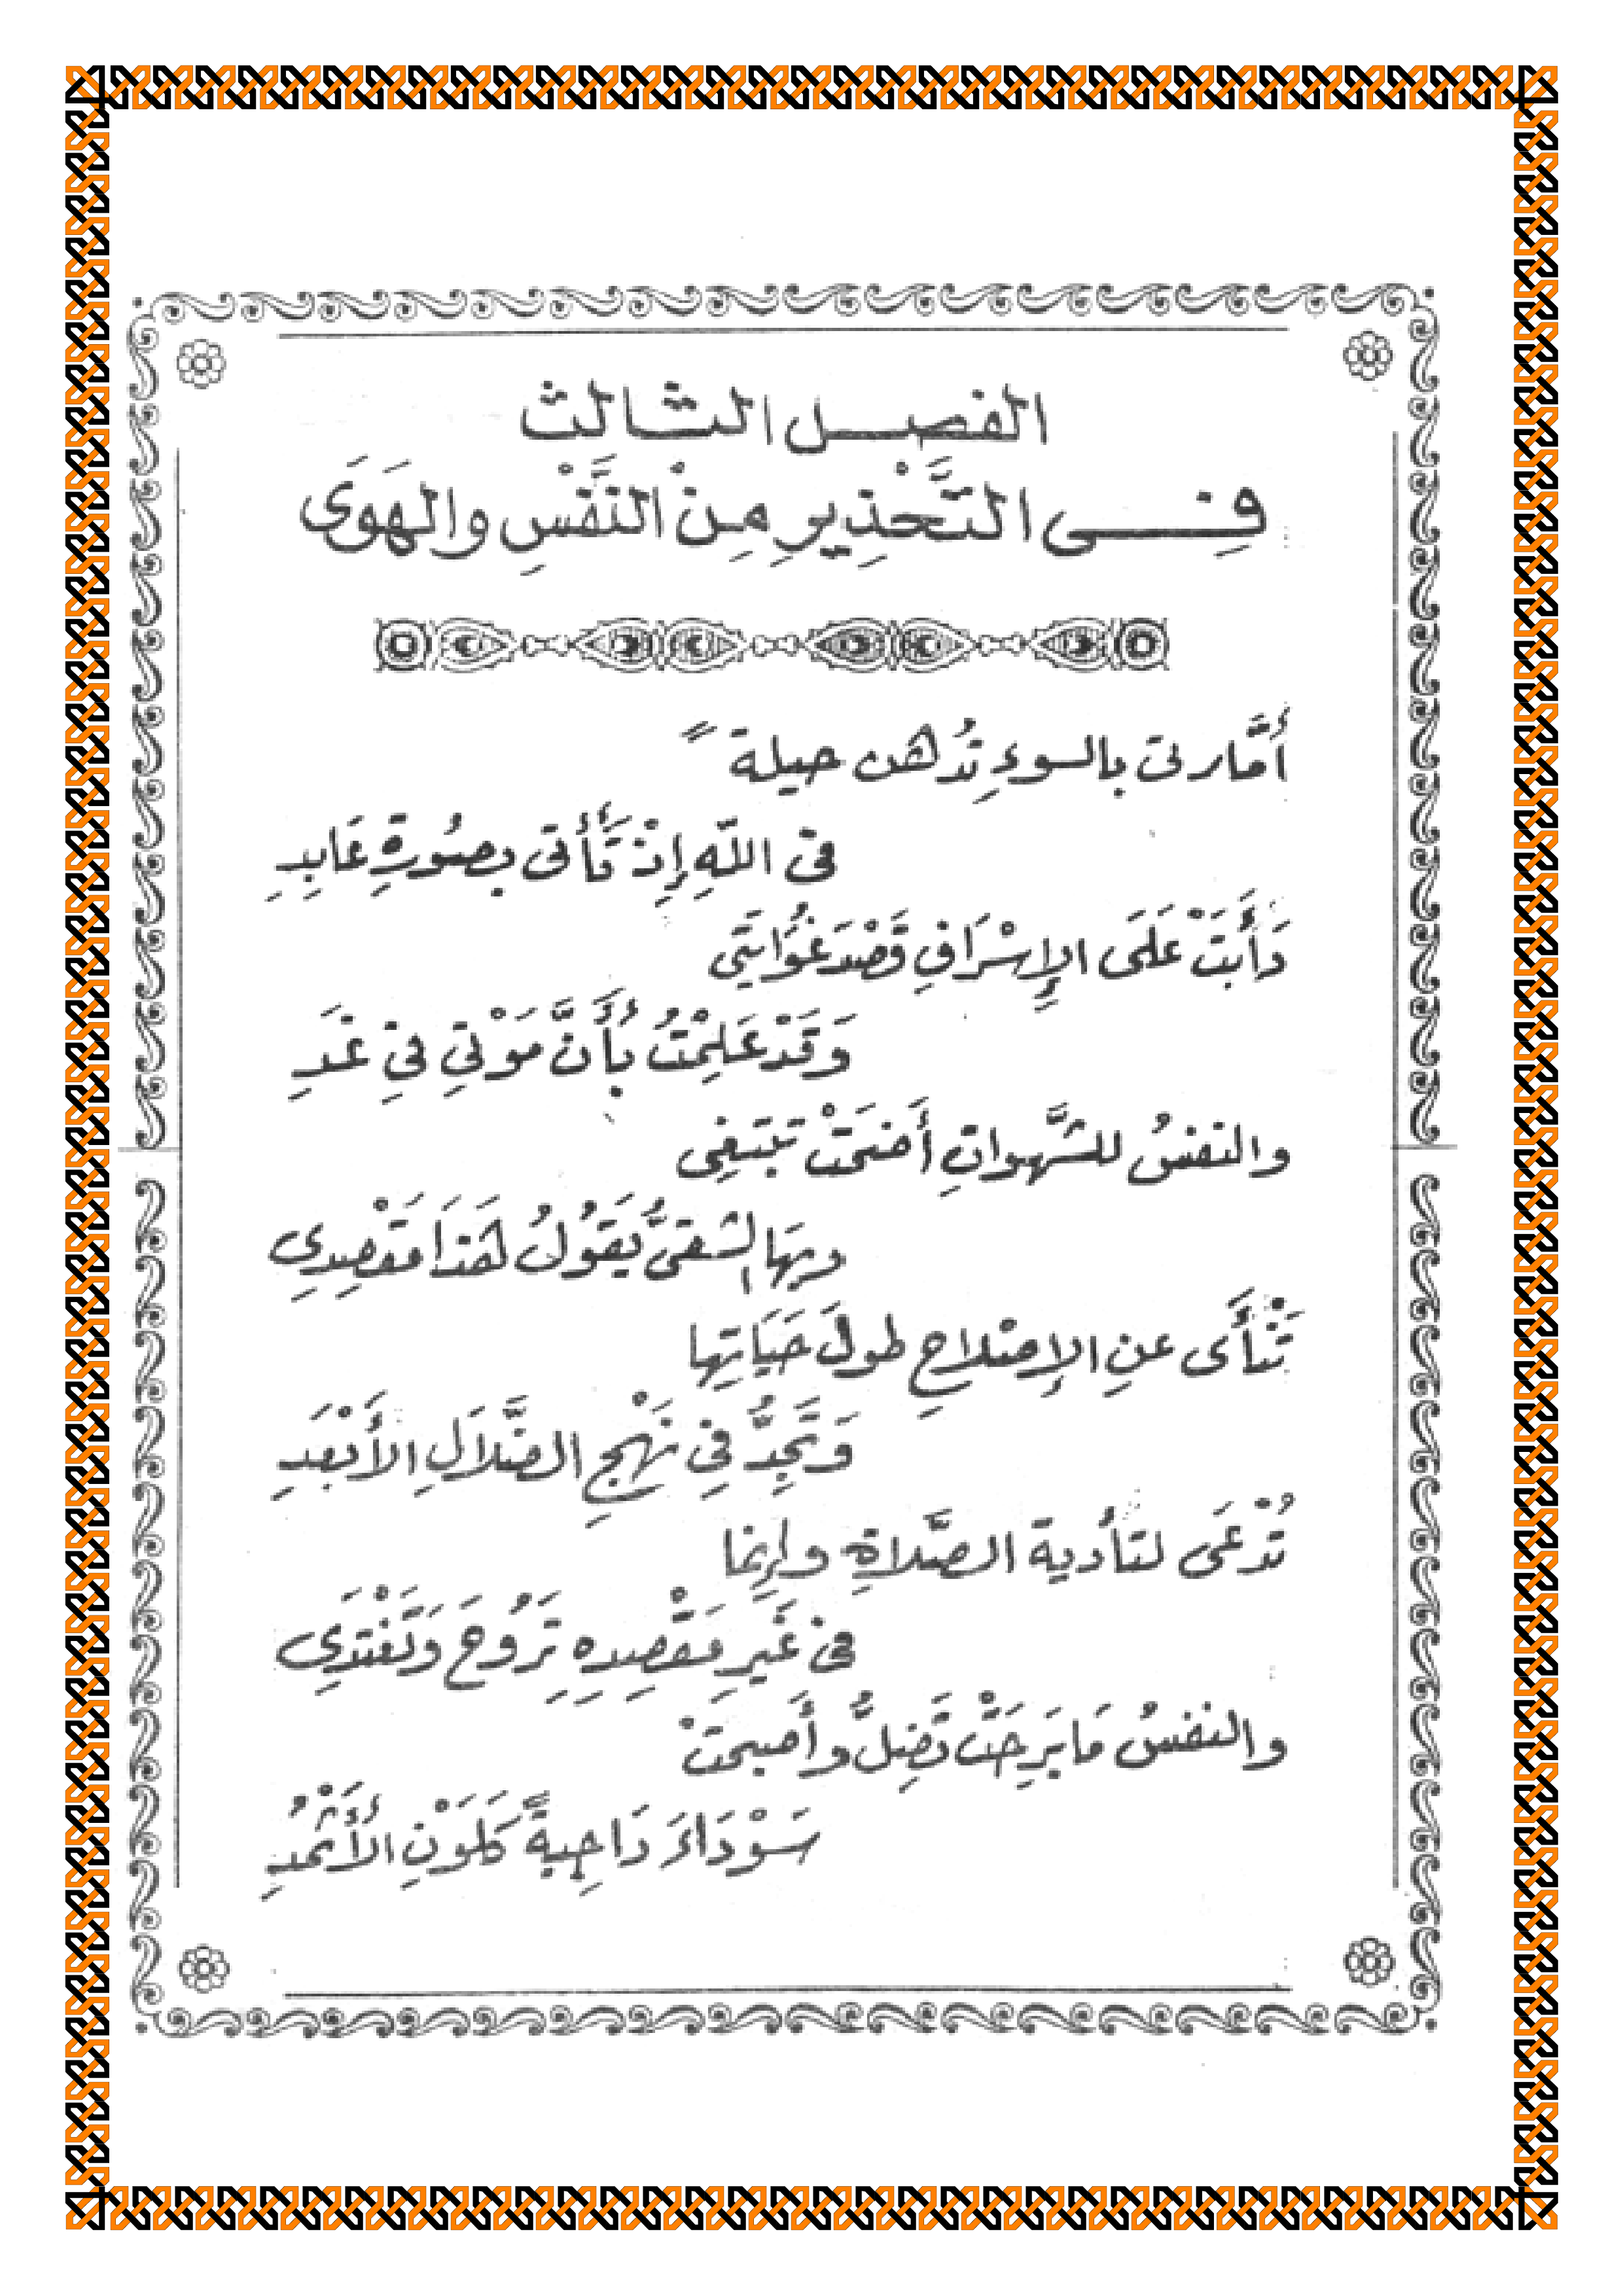 الفصل الثالث
فِى التَّحْذِيرِ مِنْ النَّفْسِ والهَوَى
أَمَّارتى بالسوءِ تُدهن حيلة ً
فى اللهِ إِذْ تَأتى بصُورةِ عَابِدِ
دَأَبَتْ عَلَى الإِسْرَافِ قَصْدَ غُوَايَتِي
وَقَدْ عَلِمْتُ بأَنَّ مَوْتِي فِي غَدِ
والنفسُ للشَّهواتِ أَضحَتْ تبتغِى
وبِهَا الشقىُّ يَقُولُ هَذَا مَقْصِدِى
تَنْأَى عنِ الإِصلاحِ طولَ حَيَاتِها
وَتَجِدُّ فِي نَهْجِ الضَّلاَلِ الأَبْعَدِ
تُدْعَى لتأدية الصَّلاةِ وإِنما
فى غَيرِ مَقْصِدِهِ تَرُوحَ وَتَغْتَدِى
والنفسُ مَا بَرِحَتْ تَضِلُّ وأَصبحتْ
سَوْدَاءَ دَاجِيةً كَلَوْنِ الأَثْمُدِ